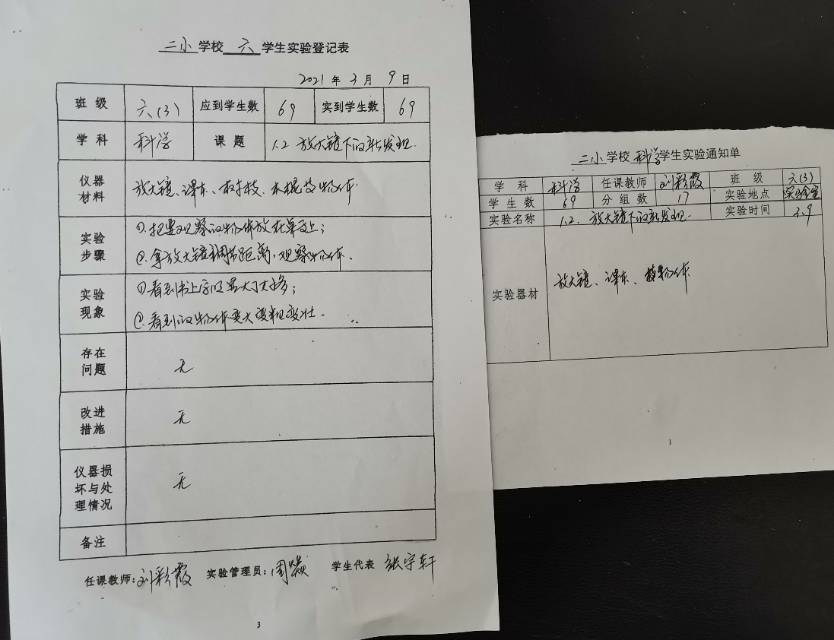 二小学校 六 学生实验登记表
2021年3月9日
班级 六(3) 应到学生数 69 实到学生数 69
学科 科学 课题 1.2 放大镜下的新发现
仪器材料 放大镜、课本、树枝、木棍等物体
实验步骤 ①.把要观察的物体放在桌上;
②.拿放大镜调节距离,观察物体.
实验现象 ①看到书上字明显大了大多;
②.看到的物体变大变粗变壮.
存在问题 无
改进措施 无
仪器损坏与处理情况 无
备注
任课教师:刘彩霞 实验管理员:周 学生代表 张宇轩
3
二小学校 科学 学生实验通知单
学科 科学 任课教师 刘彩霞 班级 六(3)
学生数 69 分组数 17 实验地点 实验室
实验名称 1.2. 放大镜下的新发现 实验时间 3.9
实验器材 放大镜、课本、物体